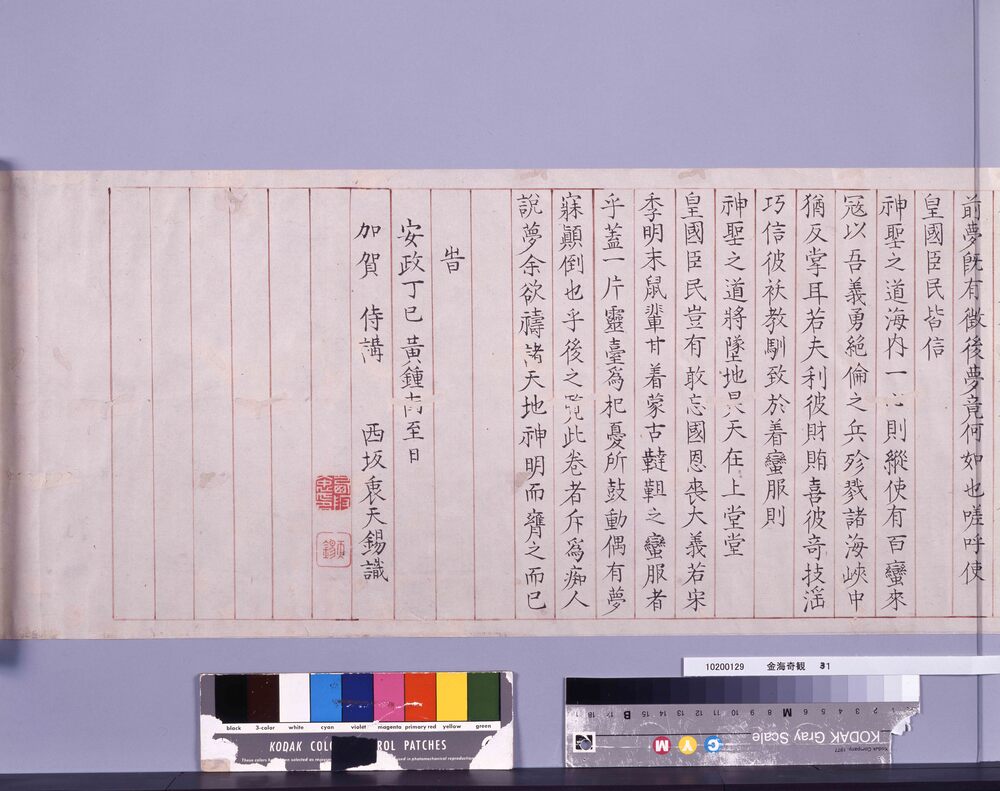 前夢既有徵後夢竟何如也嗟呼使
皇國臣民皆信
神聖之道海内一心則縱使有百蠻來
冦以吾義勇絶倫之兵殄戮諸海峽中
猶反掌耳若夫利彼財賄喜彼奇技滛
巧信彼袄教馴致於着蠻服則
神聖之道將墜地昊天在上堂堂
皇國臣民豈有敢忘國恩喪大義若宋
季明末鼠輩甘着蒙古韃靼之蠻服者
乎蓋一片靈臺爲杞憂所鼓動偶有夢
寐顚倒也乎後之覧此卷者斥爲痴人
說夢余欲禱諸天地神明而質之而已
旹
安政丁巳 黃鍾南至日
加賀 侍講 西坂衷天錫識
10200129 金海奇観 31
black 3-color white cyan violet magenta primary red yellow green
KODAK COLOR CONTROL PATCHES
KODAK Gray Scale
Kodak Company, 1977
C Y M
B M